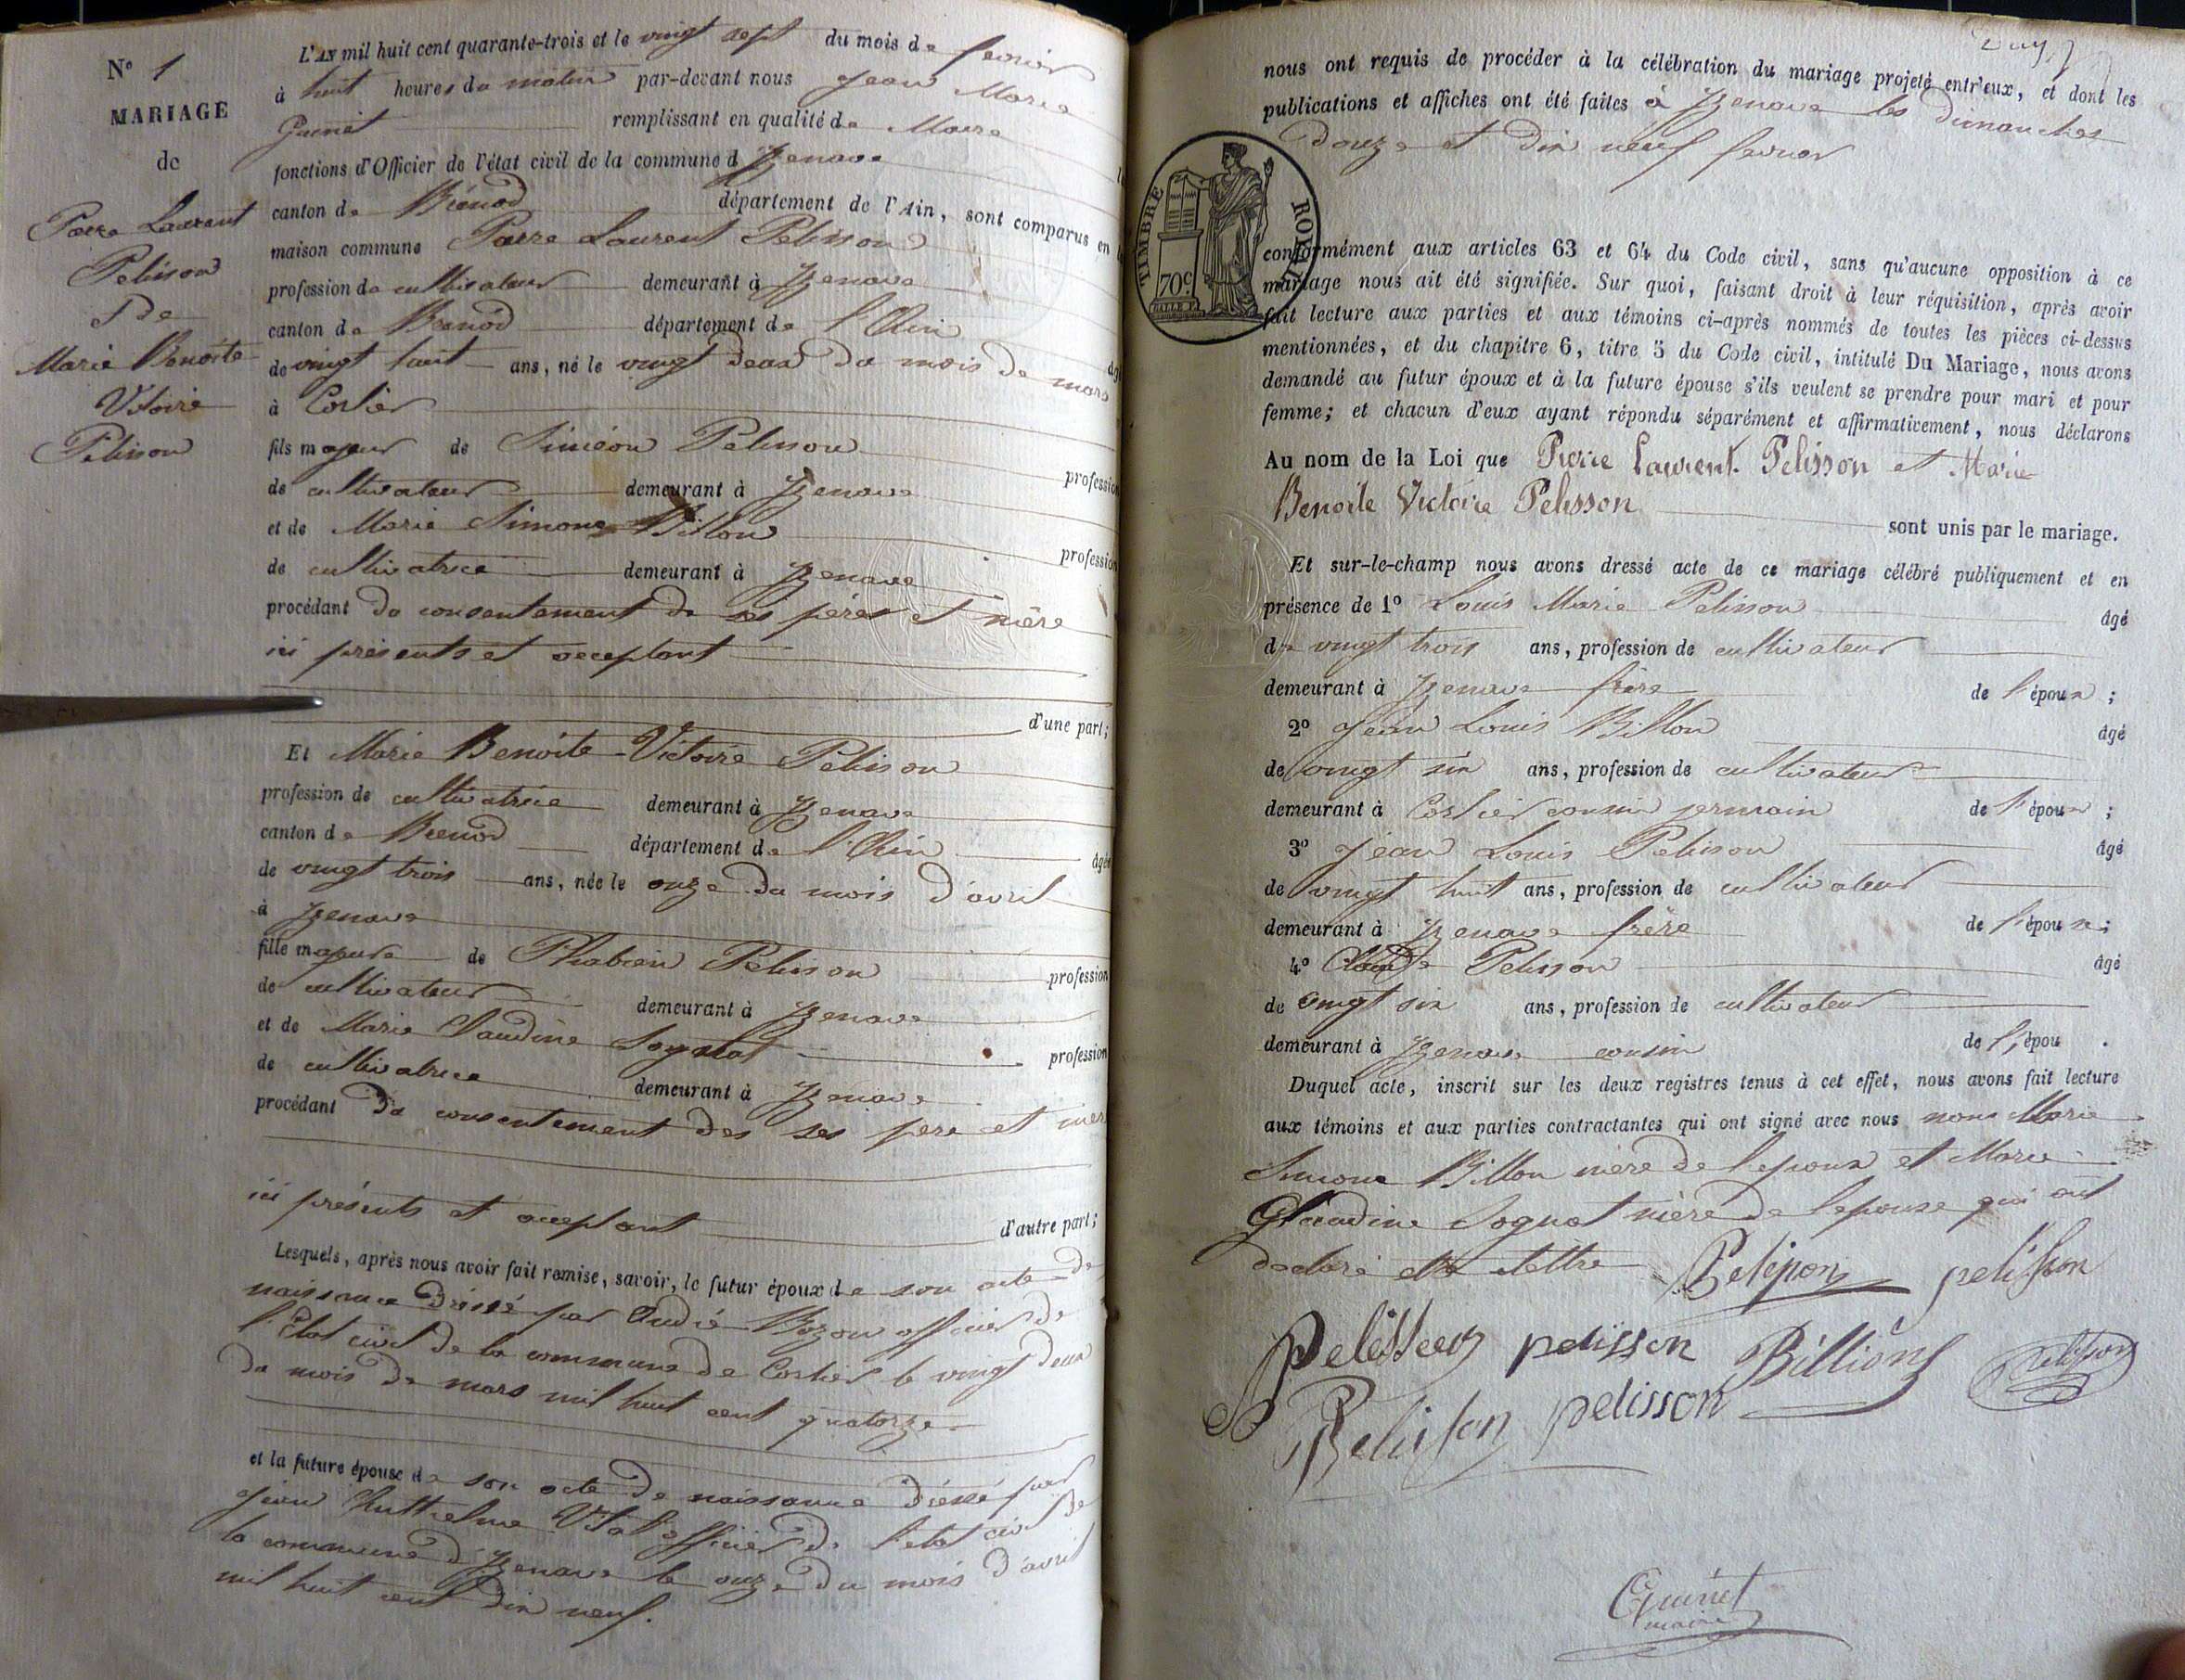 N° 1
MARIAGE
de
Pierre Laurent
Pelisson
& De
Marie Benoite
Vitoire
Pelisson
L'AN mil huit cent quarante-trois et le vingt sept du mois de fevrier
à huit heures du matin par-devant nous Jean Marie
Guinet remplissant en qualité de Maire
fonctions d'Officier de l'état civil de la commune d'Izenave
canton de Brénod département de l'Ain, sont comparus en
maison commune Pierre Laurent Pelisson
profession de cultivateur demeurant à Izenave
canton de Brenod département de l'Ain
de vingt huit ans, né le vingt deux du mois de mars
à Corlier
fils majeur de Siméon Pelisson profession
de cultivateur demeurant à Izenave
et de Marie Simone Billon profession
de cultivatrice demeurant à Izenave
procédant du consentement de ses pères et mère
ici présents et acceptant
d'une part;
Et Marie Benoite Victoire Pelisson
profession de cultivatrice demeurant à Izenave
canton de Brenod département de l'Ain âgée
de vingt trois ans, née le onze du mois d'avril
à Izenave
fille majeure de Phabien Pelisson profession
de cultivateur demeurant à Izenave
et de Marie Claudine Sognat profession
de cultivatrice demeurant à Izenave
procédant du consentement des ses père et mère
ici présents et acceptant d'autre part;
Lesquels, après nous avoir fait remise, savoir, le futur époux de son acte de
naissance dressé par André Bozon officier de
l'Etat civil de la commune de Corlier le vingt deux
du mois de mars mil huit cent quatorze
et la future épouse de son acte de naissance dressé par
Jean officier de l'etat civil de
la commune d'Izenave le onze du mois d'avril
mil huit cent dix neuf.
nous ont requis de procéder à la célébration du mariage projeté entr'eux, et dont les
publications et affiches ont été faites à Izenave les dimanches
douze et dix neuf fevrier
TIMBRE ROYAL
70c
conformément aux articles 63 et 64 du Code civil, sans qu'aucune opposition à ce
mariage nous ait été signifiée. Sur quoi, faisant droit à leur réquisition, après avoir
fait lecture aux parties et aux témoins ci-après nommés de toutes les pièces ci-dessus
mentionnées, et du chapitre 6, titre 5 du Code civil, intitulé Du Mariage, nous avons
demandé au futur époux et à la future épouse s'ils veulent se prendre pour mari et pour
femme; et chacun d'eux ayant répondu séparément et affirmativement, nous déclarons
Au nom de la Loi que Pierre Laurent Pelisson et Marie
Benoite Victoire Pelisson sont unis par le mariage.
Et sur-le-champ nous avons dressé acte de ce mariage célébré publiquement et en
présence de 1° Louis Marie Pelisson âgé
de vingt trois ans, profession de cultivateur
demeurant à Izenave frère de l'époux ;
2° Jean Louis Billon âgé
de vingt six ans, profession de cultivateur
demeurant à Corlier cousin germain de l'époux ;
3° Jean Louis Pelisson âgé
de vingt huit ans, profession de cultivateur
demeurant à Izenave frère de l'épouse;
4° Claude Pelisson âgé
de vingt six ans, profession de cultivateur
demeurant à Izenave cousin de l'épou .
Duquel acte, inscrit sur les deux registres tenus à cet effet, nous avons fait lecture
aux témoins et aux parties contractantes qui ont signé avec nous nons Marie
Simone Billon mère de l'epoux et Marie
Claudine Sognat mère de l'epouse qui ont
declaré illettre Pelisson pelisson
Pelisson pelisson Billion Pelisson
Pelisson pelisson
Guinet
maire